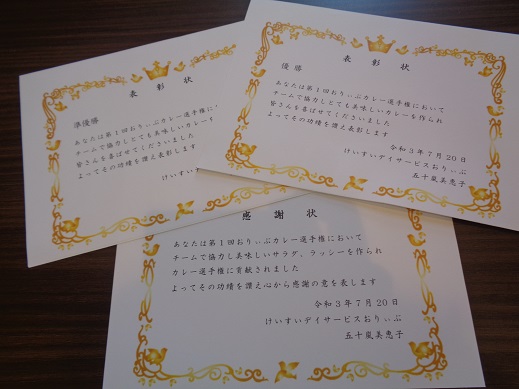 表彰状
準優勝
あなたは第1回おりぃぶカレー選手権に
チームで協力しとても美味しいカレー
皆さんを喜ばせてくださいました
よってその功績を讃え表彰します
けいすい
表彰状
優勝
あなたは第1回おりぃぶカレー選手権において
チームで協力しとても美味しいカレーを作られ
皆さんを喜ばせてくださいました
よってその功績を讃え表彰します
令和3年7月20日
けいすいデイサービスおりぃぶ
五十嵐美恵子
感謝状
あなたは第1回おりぃぶカレー選手権において
チームで協力し美味しいサラダ、ラッシーを作られ
カレー選手権に貢献されました
よってその功績を讃え心から感謝の意を表します
令和3年7月20日
けいすいデイサービスおりぃぶ
五十嵐美恵子